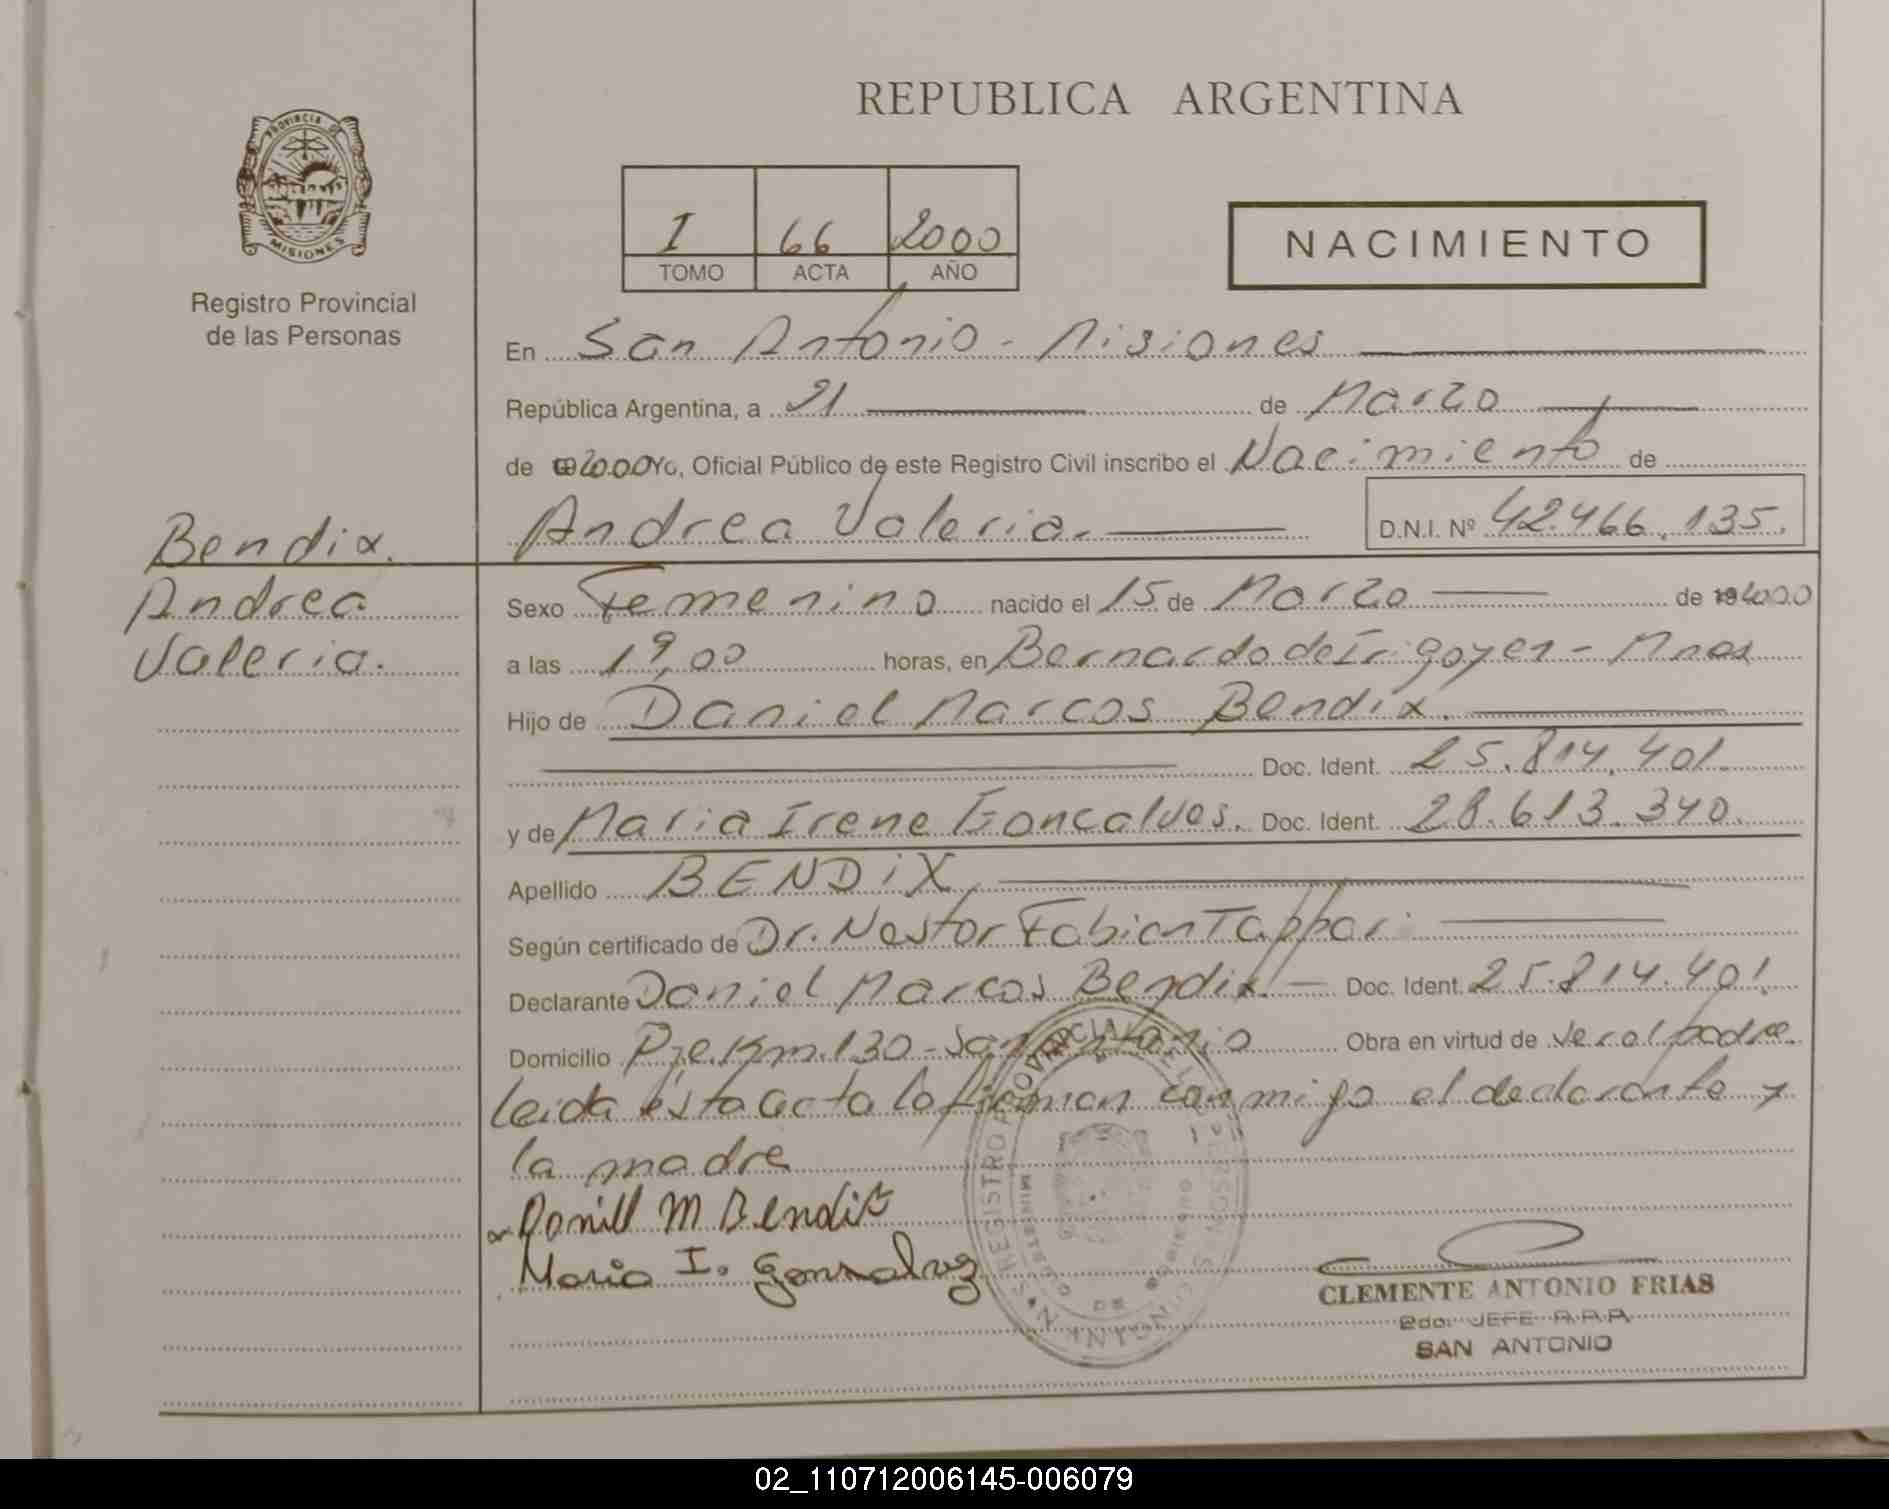 REPUBLICA ARGENTINA
PROVINCIA DE
MISIONES
Registro Provincial
de las Personas
I 66 2000
TOMO ACTA AÑO
NACIMIENTO
En San Antonio - Misiones
República Argentina, a 21 de Marzo
de 2000 Yo, Oficial Público de este Registro Civil inscribo el Nacimiento de
Andrea Valeria. D.N.I. Nº 42.466.135.
Bendix.
Andrea
Valeria.
Sexo Femenino nacido el 15 de Marzo de 2000
a las 19,00 horas, en Bernardo de Irigoyen - Mnes
Hijo de Daniel Marcos Bendix.
Doc. Ident. 25.814.401.
y de Maria Irene Goncalves. Doc. Ident. 28.613.340.
Apellido BENDiX
Según certificado de Dr. Nestor Fabian Tappari
Declarante Daniel Marcos Bendix. Doc. Ident. 25.814.401.
Domicilio Pje. Km. 130 - San Antonio Obra en virtud de ser el padre.
Leida ésta acta la firman conmigo el declarante y
la madre
Daniel M Bendix
Maria I. Gonsalvez
REGISTRO PROVINCIAL
CLEMENTE ANTONIO FRIAS
2do. JEFE R.R.P
SAN ANTONIO
02_110712006145-006079